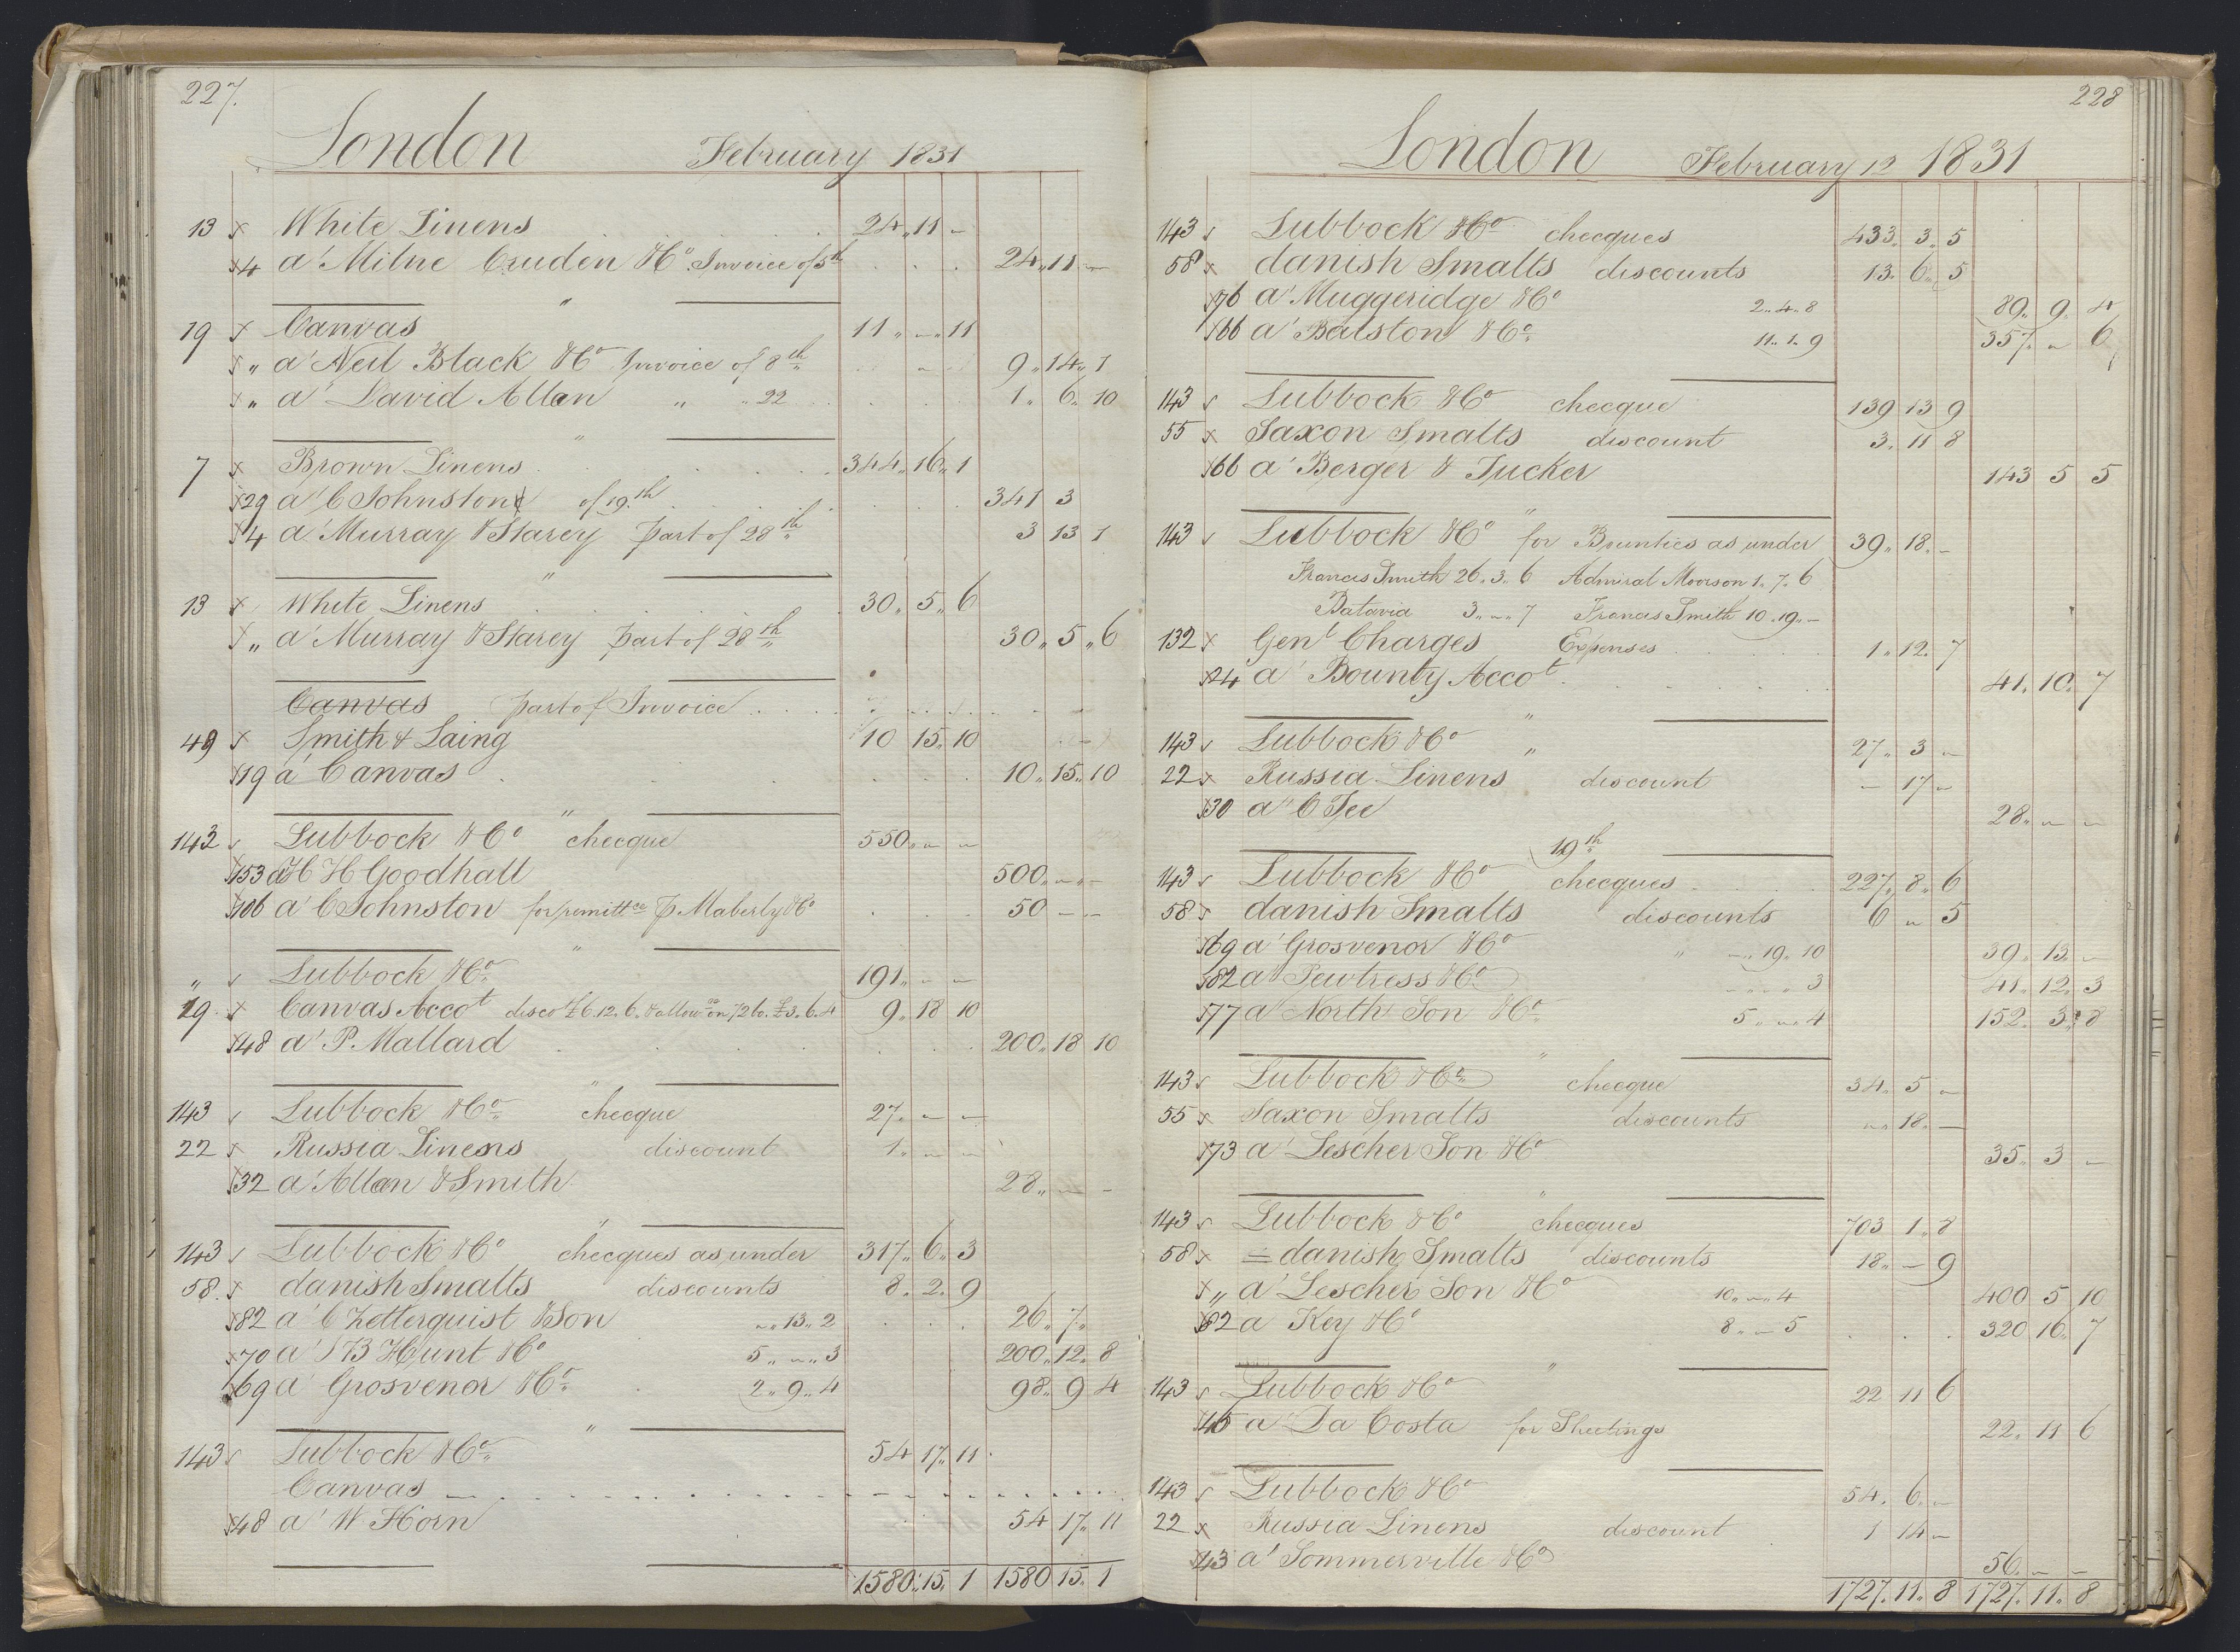 227.
London February 1831
13 x White Linens . . . . . 24 „ 11 „ –
x4 a' Milne Cruden &Co. Invoice of 5th . . . 24 „ 11 „ –
„
19 x Canvas 11 „ – „ 11
x „ a' Neil Black &Co Invoice of 8th 9 „ 14 „ 1
x „ a' David Allan „ „ 22 . . . 1 „ 6 „ 10
„
7 x Brown Linens . . . . . 344 „ 16 „ 1
x29 a' C Johnston of 19th . . . . 341 3
x4 a' Murray & Starey part of 28th 3 13 1
„
13 x White Linens . . . . . 30 „ 5 „ 6
x „ a' Murray & Starey part of 28th 30 „ 5 „ 6
Canvas part of Invoice . . . .
49 x Smith & Laing 10 15 „ 10
x19 a' Canvas . . . . 10 „ 15 „ 10
„
143 s Lubbock &Co checque 550 „ – „ –
x153 a' H H Goodhall 500 „ – „ –
x106 a' C Johnston for remittce P Maberly &Co . . . 50 – –
„
„ s Lubbock &Co 191 „ – –
19 x Canvas Accot discot £6.12.6. & allowce on 726. £3.6.4 9 „ 18 10
x48 a' P. Mallard . . . . 200 „ 18 10
„
143 s Lubbock &Co checque 27 „ – –
22 x Russia Linens discount 1 „ – –
x32 a' Allan & Smith 28 „ – –
„
143 s Lubbock &Co checques as under 317 „ 6 „ 3
58. x danish Smalts discounts 8 „ 2 „ 9
x82 a' C Zetterquist & Son – „ 13 „ 2 . . . 26 „ 7 „
x70 a' J B Hunt &Co 5 „ – „ 3 200 „ 12 „ 8
x69 a' Grosvenor &Co 2 „ 9 „ 4 98 „ 9 4
„
143 s Lubbock &Co 54 17 „ 11
Canvas – . . . . . . . .
x48 a' W Horn 54 17 „ 11
1580 „ 15 „ 1 1580 15 „ 1
228
London February 12 1831
143 s Lubbock &Co checques 433 „ 3 „ 5
58 x danish Smalts discounts 13 „ 6 „ 5
x76 a' Muggeridge &Co 2 „ 4 „ 8 89 „ 9 „ 4
x66 a' Balston &Co 11 „ 1 „ 9 357 „ – 6
143 s Lubbock &Co checque 139 13 9
55 x Saxon Smalts discount 3 „ 11 8
x66 a' Berger & Tucker 143 5 5
„
143 s Lubbock &Co for Bounties as under 39 „ 18 „ –
Francis Smith 26 „ 3 „ 6 Admiral Moorson 1 „ 7 „ 6
Batavia 3 „ – „ 7 Francis Smith 10 „ 19 „ –
132 x Genl Charges Expenses . . . . 1 „ 12 „ 7
x24 a' Bounty Accot . . . . . 41 „ 10 „ 7
„
143 s Lubbock &Co „ 27 „ 3 –
22 x Russia Linens discount – 17 –
x30 a' C Tee 28 „ – –
19th
143 s Lubbock &Co checques . . . . 227 „ 8 „ 6
58 s danish Smalts discounts 6 – 5
x69 a' Grosvenor &Co „ – „ 19 „ 10 39 „ 13 „ –
x82 a' Pewtress &Co – „ – „ 3 41 „ 12 „ 3
x77 a' North Son &Co 5 „ – „ 4 152 „ 3 „ 8
„
143 s Lubbock &Co checque 34 „ 5 –
55 x Saxon Smalts discounts – „ 18 „ –
x73 a' Lescher Son &Co 35 „ 3 –
„
143 s Lubbock &Co checques 703 1 „ 8
58 x = danish Smalts discounts 18 „ – 9
x „ a' Lescher Son &Co 10 „ – „ 4 400 5 10
x82 a' Key &Co 8 „ – 5 . . . 320 16 „ 7
„
143 s Lubbock &Co 22 11 6
x45 a' Da Costa for Sheetings 22 „ 11 6
143 s Lubbock &Co 54 „ 6 „ –
22 x Russia Linens discount 1 14 –
x43 a' Sommerville &Co 56 „ – –
1727 „ 11 „ 8 1727 „ 11 „ 8